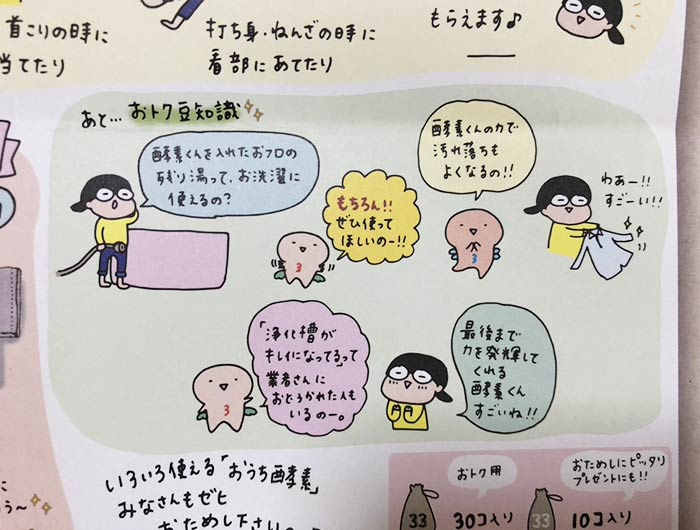 首こりの時に
当てたり
打ち身・ねんざの時に
看部にあてたり
もらえます♪
あと… おトク豆知識
酵素くんを入れたおフロの
残り湯って、お洗濯に
使えるの?
もちろん!!
ぜひ使って
ほしいのー!!
酵素くんの力で
汚れ落ちも
よくなるの!!
わあー!!
すごーい!!
3
3
「浄化槽が
キレイになってるって」
業者さんに
おどろかれた人も
いるのー。
3
最後まで
力を発揮して
くれる
酵素くん
すごいね!!
いろいろ使える「おうち酵素」
みなさんもゼヒ
おためし下さいの
おトク用
33
30コ入り
おためしにピッタリ
プレゼントにも!!
33
10コ入り